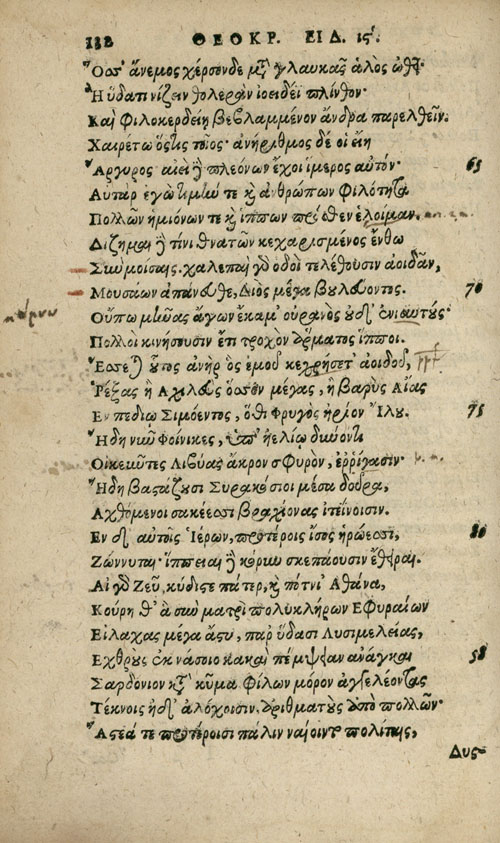 132 ΘΕΟΚΡ. ΕΙΔ. ις΄.
Ὅσσ' ἄνεμος χέρσονδε μετὰ γλαυκᾶς ἁλὸς ὠθεῖ·
Ἢ ὕδατι νίζειν θολερὰν ἰοειδέϊ πλίνθον·
Καὶ φιλοκερδείῃ βεβλαμμένον ἄνδρα παρελθεῖν.
Χαιρέτω ὅστις τοῖος· ἀνήριθμος δέ οἱ εἴη
Ἄργυρος αἰεὶ δὲ πλεόνων ἔχοι ἵμερος αὐτόν· 65
Αὐτὰρ ἐγὼ τιμὴν τε καὶ ἀνθρώπων φιλότητα
Πολλῶν ἡμιόνων τε καὶ ἵππων πρόσθεν ἑλοίμαν.
Δίζημαι δὲ τίνι θνατῶν κεχαρισμένος ἔνθω
Σὺν μοίσαις. χαλεπαὶ γὰρ ὁδοὶ τελέθουσιν ἀοιδᾶν,
Μουσάων ἀπάνευθε, Διὸς μέγα βουλεύοντος. 70
Οὔπω μῆνας ἄγων ἔκαμ' οὐρανὸς οὐδ' ἐνιαυτούς·
Πολλοὶ κινήσουσιν ἔτι τροχὸν ἅρματος ἵπποι.
Ἔσσεται οὗτος ἀνὴρ ὃς ἐμοῦ κεχρήσετ' ἀοιδοῦ,
Ῥέξας ἢ Ἀχιλεὺς ὅσσον μέγας, ἢ βαρὺς Αἴας
Ἐν πεδίῳ Σιμόεντος, ὅθι Φρυγὸς ἠρίον Ἴλου. 75
Ἤδη νῦν Φοίνικες, ὑπ' ἠελίῳ δύνοντι
Οἰκεῦντες Λιβύας ἄκρον σφυρὸν, ἐρρίγασιν·
Ἤδη βαστάζουσι Συρακόσιοι μέσα δοῦρα,
Ἀχθόμενοι σακέεσσι βραχίονας ἰτεΐνοισιν.
Ἐν δ' αὐτοῖς Ἱέρων, προτέροις ἴσος ἡρώεσσι, 80
Ζώννυται· ἵππειαι δὲ κόρυν σκεπάουσιν ἔθειραι.
Αἲ γὰρ Ζεῦ, κύδιστε πάτερ, καὶ πότνι' Ἀθάνα,
Κούρη θ' ἃ σὺν ματρὶ πολυκλήρων Ἐφυραίων
Εἴλαχας μέγα ἄστυ, παρ' ὕδασι Λυσιμελείας,
Ἐχθροὺς ἐκ νάσοιο κακαὶ πέμψειαν ἀνάγκαι 58
Σαρδόνιον κατὰ κῦμα φίλων μόρον ἀγγελέοντας
Τέκνοις ἠδ' ἀλόχοισιν ἀριθματοὺς ἀπὸ πολλῶν·
Ἄστεά τε προτέροισι πάλιν ναίοιντο πολίταις,
Δυσ-